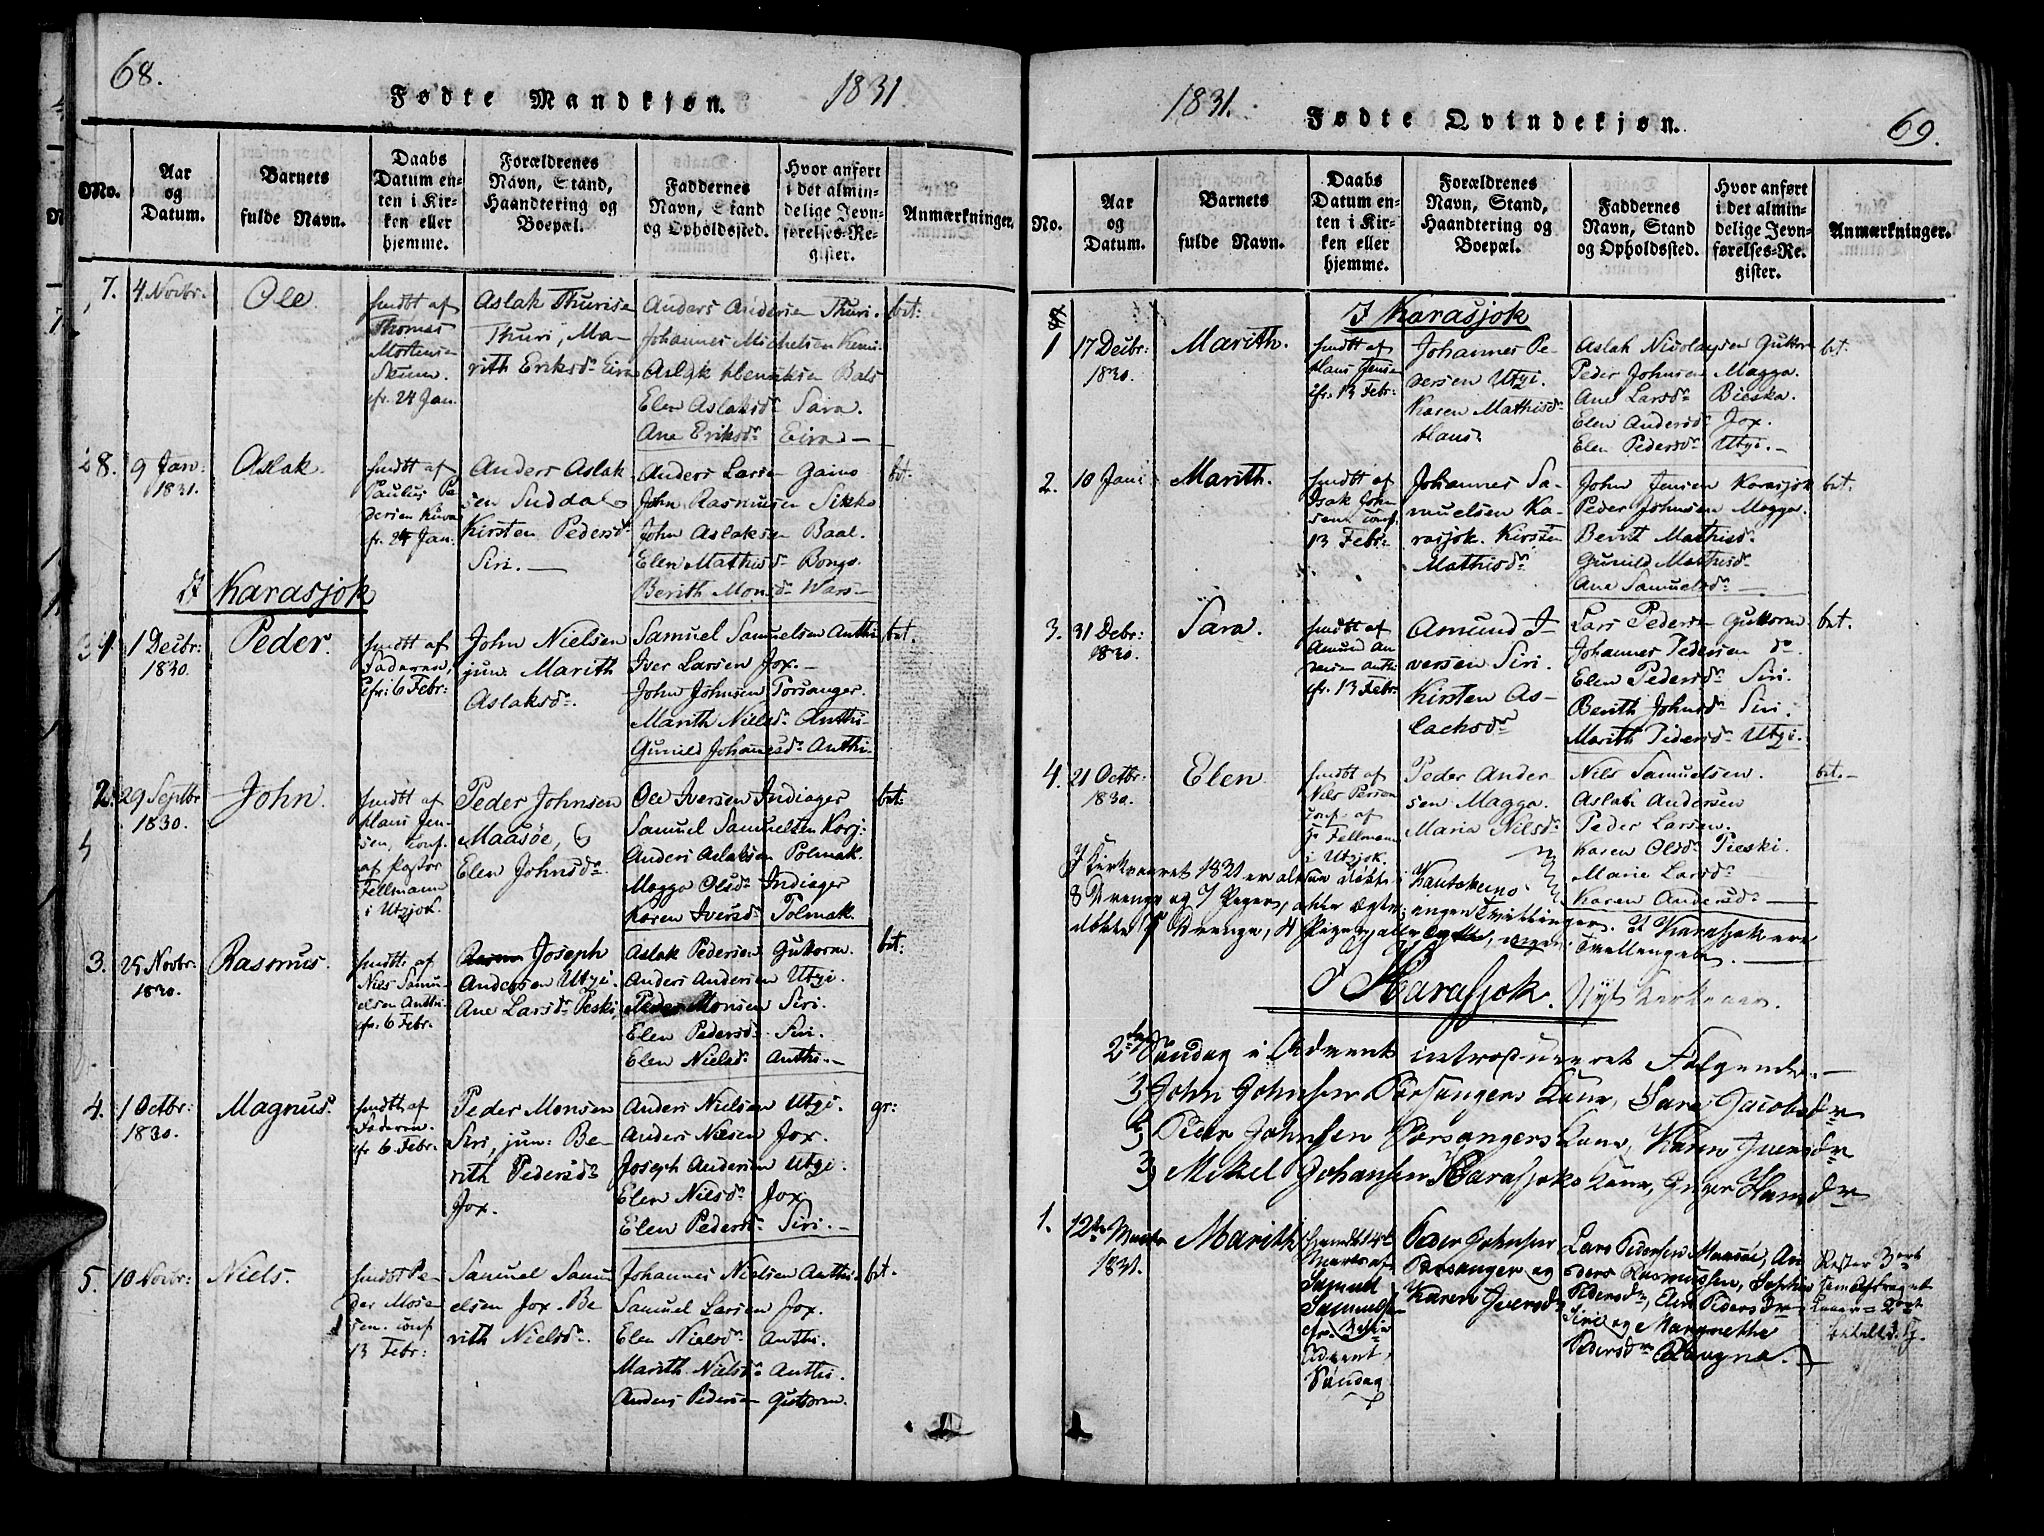 68.
Fødte Mandkjøn.
1831
No.
Aar og Datum.
Barnets fulde Navn.
Daabs Datum enten i Kirken eller hjemme.
Forældrenes Navn, Stand, Haandtering og Boepæl.
Faddernes Navn, Stand og Opholdssted.
Hvor anført i det almindelige Jevnførelses-Register.
Anmærkninger.
7. 4 Novbr.
Ole
hmdbt af
Thomas
Mortensen
Skum.
cfr. 24 Jan.
Aslak Thurisen
Thuri, Ma-
rith Eriksdr Eira
Anders Andersen Thuri.
Johannes Michelsen Kemi.
Aslak Henriksen Bals
Elen Aslaksdr Sara.
Ane Eriksdr Eira —
bet:
8. 9 Jan:
1831.
Aslak.
hmdbt af
Paulus Pe
dersen Kuva
fr. 24 Jan.
Anders Aslak
sen Suddal
Kirsten Pedersdr
Siri. —
Anders Larsen Gaino
John Rasmusen Sikko
John Aslaksen Baal.
Elen Mathisdr Bongo
Berith Monsdr Wars —
bet.
I Karasjok
1 1 Decbr:
1830.
Peder.
hmdbt af
Faderen,
cfr: 6 Febr:
John Nielsen
jun. Marith
Aslaksdr.
Samuel Samuelsen Anthi
Iver Larsen Jox. —
John Johnsen Porsanger.
Marith Nielsdr Anthi-
Gunild Johannesdr Anthi-
bet.
2. 29 Septbr
1830.
John.
hmdbt af
Hans Jen-
sen, conf.
af Pastor
Fellmann
i Utzjok.
Peder Johnsen
Maasøe,
Elen Johnsdr
Ole Iversen Indiager
Samuel Samuelsen Korsj:
Anders Aslaksen Polmak.
Magga Olsdr Indiager
Karen Iversdr Polmak.
bet:
3. 25 Novbr:
1830.
Rasmus.
hmdbt: af
Nils Samu
elsen Anthi
cfr. 6 Febr.
Joseph
Andersen Utzi.
Ane Larsdr Peski.
Aslak Pedersen Guttorm.
Anders Andersen Utzi.
Peder Monsen Siri.
Elen Pedersdr Siri.
Elen Nielsdr Anthi. —
bet:
4. 1 Octbr:
1830.
Magnus.
hmdbt af
Faderen.
cfr 6 Febr.
Peder Monsen
Siri, jun: Be-
rith Pedersdr
Jox.
Anders Nielsen Utzi.
Anders Nielsen Jox.
Joseph Andersen Utzi.
Elen Nilsdr Jox
Elen Pedersdr Siri. —
gr:
5. 10 Novbr:
Niels.
hmdbt Pe
der Mose
sen. conf
13 Febr:
Samuel Samu
elsen Jox. Be
rith Nielsdr.
Johannes Nielsen Anthi.
Samuel Larsen Jox.
Elen Nielsdr Anthi.
Marith Nielsdr Anthi.
Anders Pedersen Guttorm.
bet.
1831.
Fødte Qvindekjøn.
69.
No.
Aar og Datum.
Barnets fulde Navn.
Daabs Datum enten i Kirken eller hjemme.
Forældrenes Navn, Stand, Haandtering og Boepæl.
Faddernes Navn, Stand og Opholdssted.
Hvor anført i det almindelige Jevnførelses-Register.
Anmærkninger.
I Karasjok
1 17 Decbr:
1830.
Marith.
hmdbt af
Hans Jensen
cfr. 13 Febr:
Johannes Pe-
dersen Utzi.
Karen Mathisdr
Hans
Aslak Nicolaysen Guttorm
Peder Johnsen Magga.
Ane Larsdr Bieska.
Elen Andersdr Jox.
Elen Pedersdr Utzi. —
bet.
2. 10 Jan:
Marith.
hmdbt af
Isak John
sen. conf.
13 Febr:
Johannes Sa-
muelsen Ka-
rasjok. Kirsten
Mathisdr
John Jensen Karasjok
Peder Johnsen Magga.
Berit Mathisdr
Gunild Mathisdr
Ane Samuelsdr —
bet.
3. 31 Debr:
1830.
Sara.
hmdbt af
Amund An
dersen Anthi
cfr. 13 Febr:
Amund I-
versen Siri.
Kirsten As-
lachsdr
Lars Pedersen Guttorm
Johannes Pedersen do.
Elen Pedersdr Siri.
Berith Johnsdr Siri.
Marith Pedersdr Utzi.
bet.
4. 21 Octbr:
1830.
Elen
hmdbt af
Nils Person
conf. af
Fr Fellmann
i Utzjok.
Peder Ander
sen Magga.
Maria Nilsdr
Nils Samuelsen.
Aslak Andersen
Peder Larsen.
Karen Olsdr Pieski.
Marie Larsdr
Karen Andersdr —
bet. —
I Kirkeaaret 1831 er altsaa døbte i Kautokeino
8 Drenge og 7 Piger, alle Ægte; ingen Tvillinger. I Karasjok ere
døbte 5 Drenge, 4 Piger, alle Ægte, ingen Tvillinger. —
I Karasjok. Nyt Kirkeaar.
2den Søndag i Advent introduceret Følgende. —
John Johnsen Porsangers Kone, Sara Jacobsdr
Peder Johnsen Porsangers Kone, Karen Iversdr
Mikel Johansen Karasjoks Kone, Inger Hansdr
1. 12te Marts
1831.
Marith
hjemdbt 14de
Marts af
Samuel
Samuelsen
cfr. 2den
Advent
Søndag
Peder Johnsen
Porsanger og
Karen Iversdr
Lars Pedersen Maasøe, An
ders Rasmussen, Sophie
Pedersdr, Elen Pedersdr
Siri og Margrethe
Pedersdr